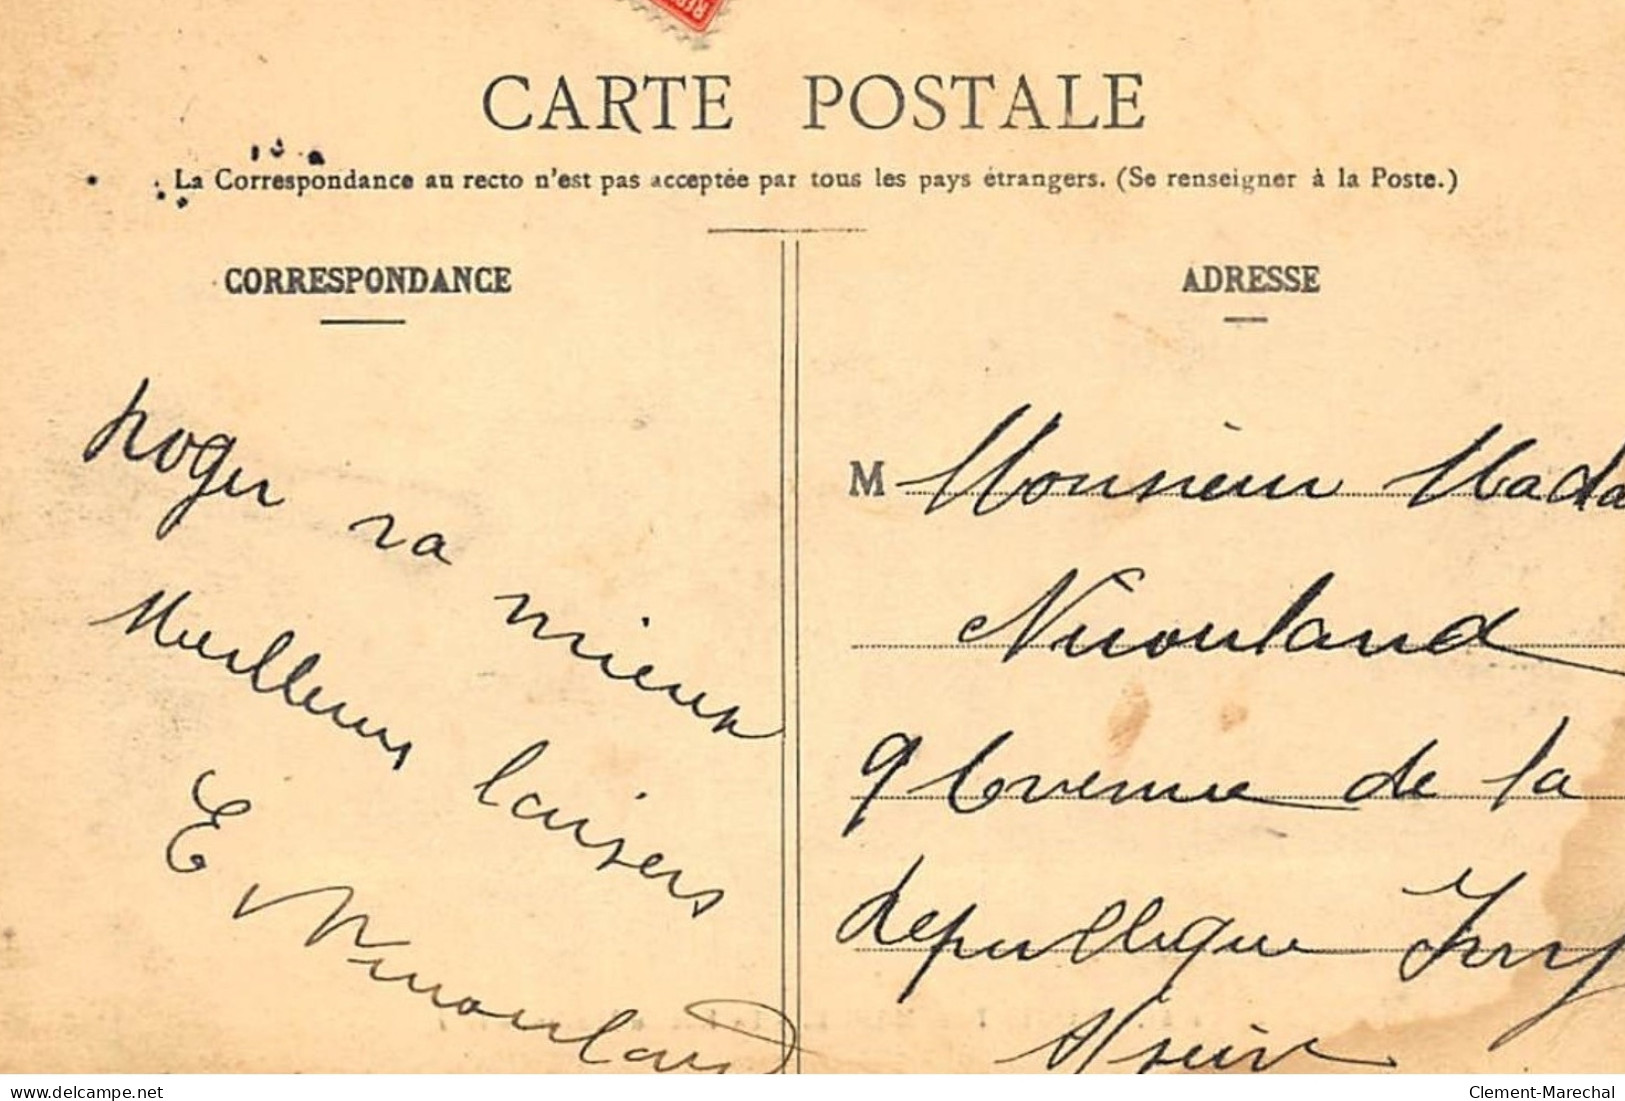 CARTE POSTALE
La Correspondance au recto n'est pas acceptée par tous les pays étrangers. (Se renseigner à la Poste.)
CORRESPONDANCE
roger va mieux
Meilleurs baisers
E
ADRESSE
M Monsieur Mada
9 Avenue de la
république Ivry
Seine
Clement-Marechal